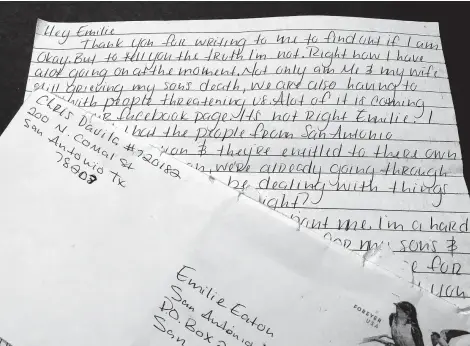 Hey Emilie
Thank you for writing to me to find out if I am
Okay. But to tell you the truth I'm not. Right now I have
alot going on at the moment. Not only am Me & my wife
still grieving my sons death, we are also having to
with people threatening us. Alot of it is coming
facebook page. It's not Right Emilie. I
the people from San Antonio
& they're entitled to there own
we're already going through
be dealing with things
right?
me. I'm a hard
my sons &
for
you
Chris Davila #720182
200 N. Comal St
San Antonio Tx
78207
Emilie Eaton
San Antonio
P.O. Box 2
San
FOREVER
USA